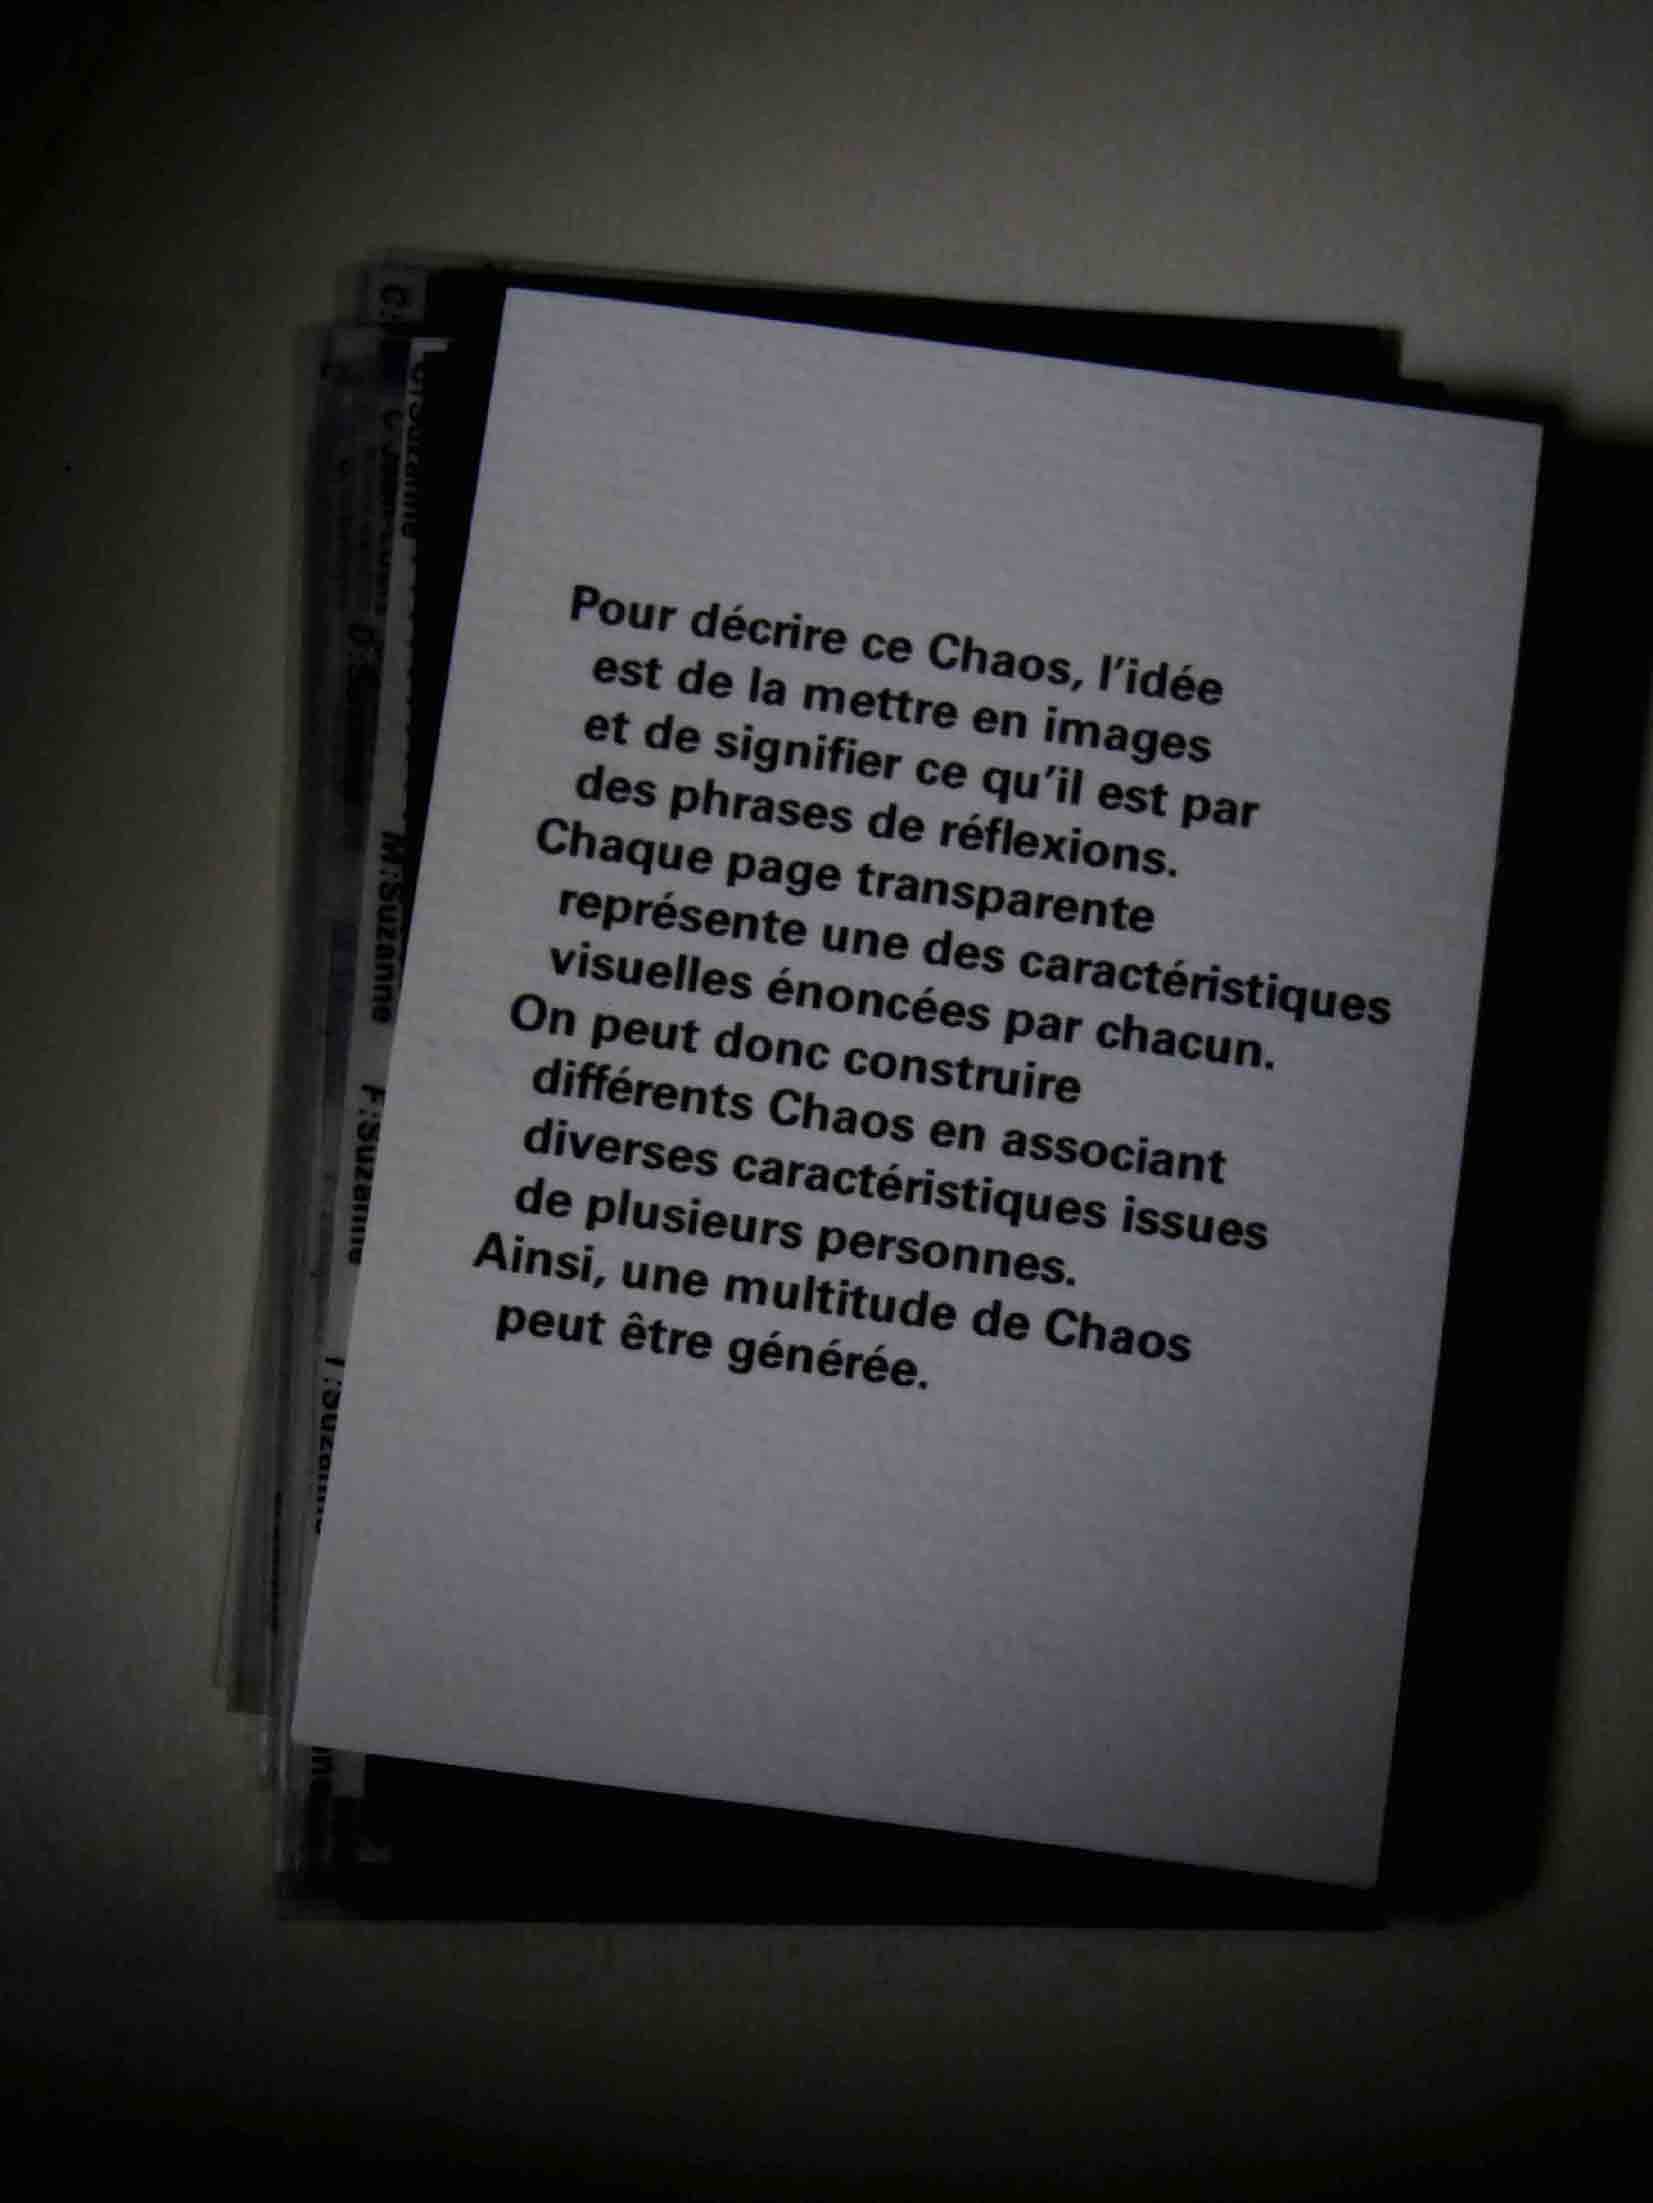 Pour décrire ce Chaos, l'idée
est de la mettre en images
et de signifier ce qu'il est par
des phrases de réflexions.
Chaque page transparente
représente une des caractéristiques
visuelles énoncées par chacun.
On peut donc construire
différents Chaos en associant
diverses caractéristiques issues
de plusieurs personnes.
Ainsi, une multitude de Chaos
peut être générée.
M:Suzanne
F:Suzanne